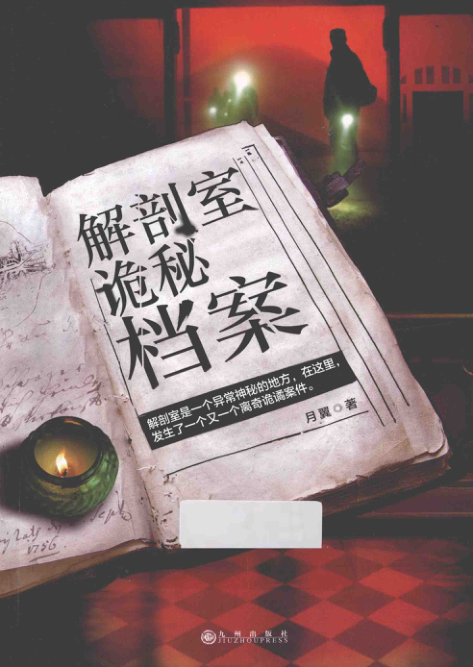 解剖室
诡秘
档案
解剖室是一个异常神秘的地方，在这里，
发生了一个又一个离奇诡谲案件。
月翼◎著
1736
九州出版社
JIUZHOUPRESS